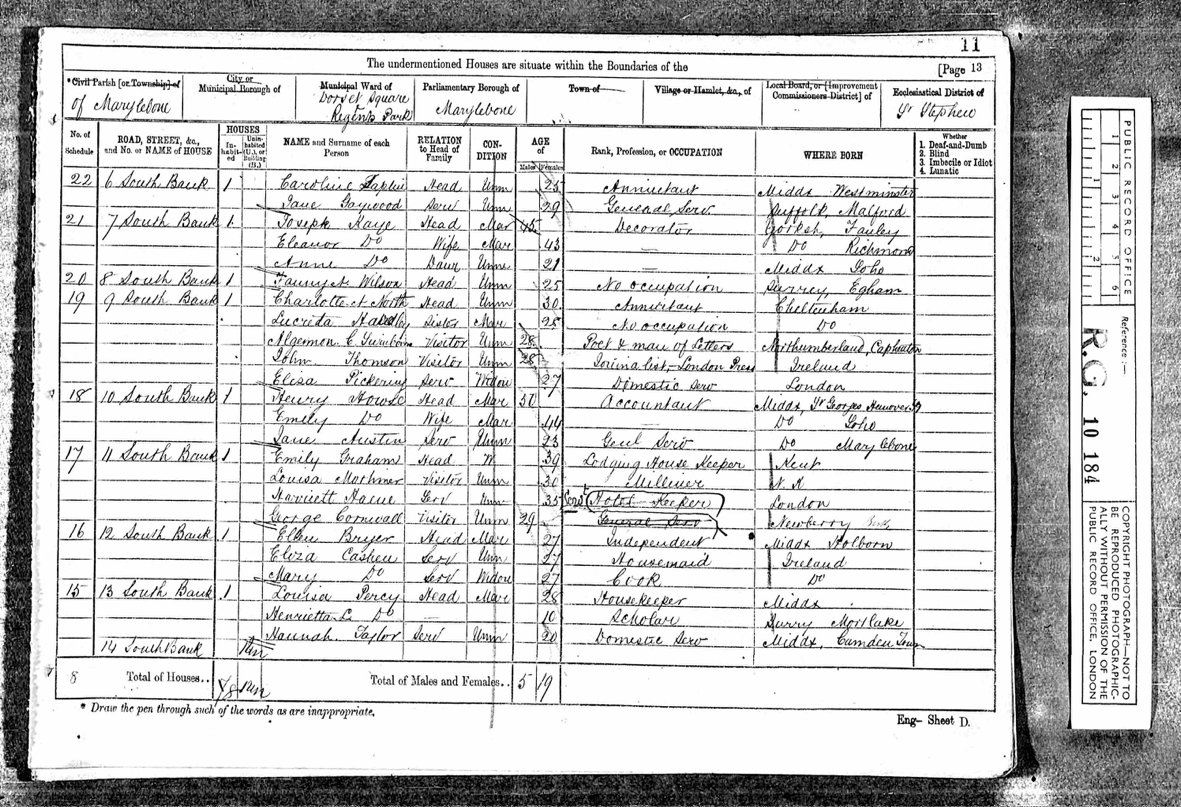 11
The undermentioned Houses are situate within the Boundaries of the
[Page 13
*Civil Parish [or Township] of
City or Municipal Borough of
Municipal Ward of
Parliamentary Borough of
Town of
Village or Hamlet, &c., of
Local Board, or [Improvement Commissioners District] of
Ecclesiastical District of
of Marylebone
Dorset Square
Regents Park
Marylebone
St Stephen
No. of Schedule
ROAD, STREET, &c., and No. or NAME of HOUSE
HOUSES
Inhabited
Uninhabited (U.), or Building (B.)
NAME and Surname of each Person
RELATION to Head of Family
CONDITION
AGE of
Males
Females
Rank, Profession, or OCCUPATION
WHERE BORN
Whether
1. Deaf-and-Dumb
2. Blind
3. Imbecile or Idiot
4. Lunatic
22 6 South Bank 1 Caroline Head Unm 25 Annuitant Middx Westminster
Jane Gaywood Serv Un 29 General Serv Suffolk Malford
21 7 South Bank 1 Joseph Kaye Head Mar 45 Decorator
Eleanor Do Wife Mar 43 — Do Richmond
Anne Do Daur Unm 21 — Middx Soho
20 8 South Bank 1 Fanny A Wilson Head Unm 25 No occupation Surrey, Egham
19 9 South Bank 1 Charlotte A North Head Unm 30 Annuitant Cheltenham
Lucretia Sister Mar 25 No occupation Do
Algernon C Swinborn Visitor Unm 28 Poet & man of Letters Northumberland, Capheaton
John Thomson Visitor Unm 28 Journalist, London Press Ireland
Eliza Pickering Serv Widow 27 Domestic Serv London
18 10 South Bank 1 Henry Howse Head Mar 50 Accountant Middx, St Georges Hanover Sq
Emily Do Wife Mar 44 Do Soho
Jane Austin Serv Unm 23 Genl Serv Do Marylebone
17 11 South Bank 1 Emily Graham Head W 39 Lodging House Keeper Kent
Louisa Visitor Unm 30 Milliner N. K
Harriett Serv Unm 35 Hotel Keeper London
George Cornwall Visitor Unm 29 General Serv Newberry
16 12 South Bank 1 Ellen Bryer Head Mar 27 Independent Middx Holborn
Eliza Cashen Serv Unm 27 Housemaid Ireland
Mary Do Serv Widow 27 Cook Do
15 13 South Bank 1 Louisa Percy Head Mar 28 Housekeeper Middx
Henrietta L Do 10 Scholar Surry Mortlake
Hannah Taylor Serv Unm 20 Domestic Serv Middx, Camden Town
14 South Bank
8 Total of Houses.. Total of Males and Females.. 5 19
* Draw the pen through such of the words as are inappropriate.
Eng— Sheet D.
PUBLIC RECORD OFFICE
1 2 3 4 5 6
1 2
Reference :—
R.G. 10 184
COPYRIGHT PHOTOGRAPH—NOT TO BE REPRODUCED PHOTOGRAPHICALLY WITHOUT PERMISSION OF THE PUBLIC RECORD OFFICE, LONDON